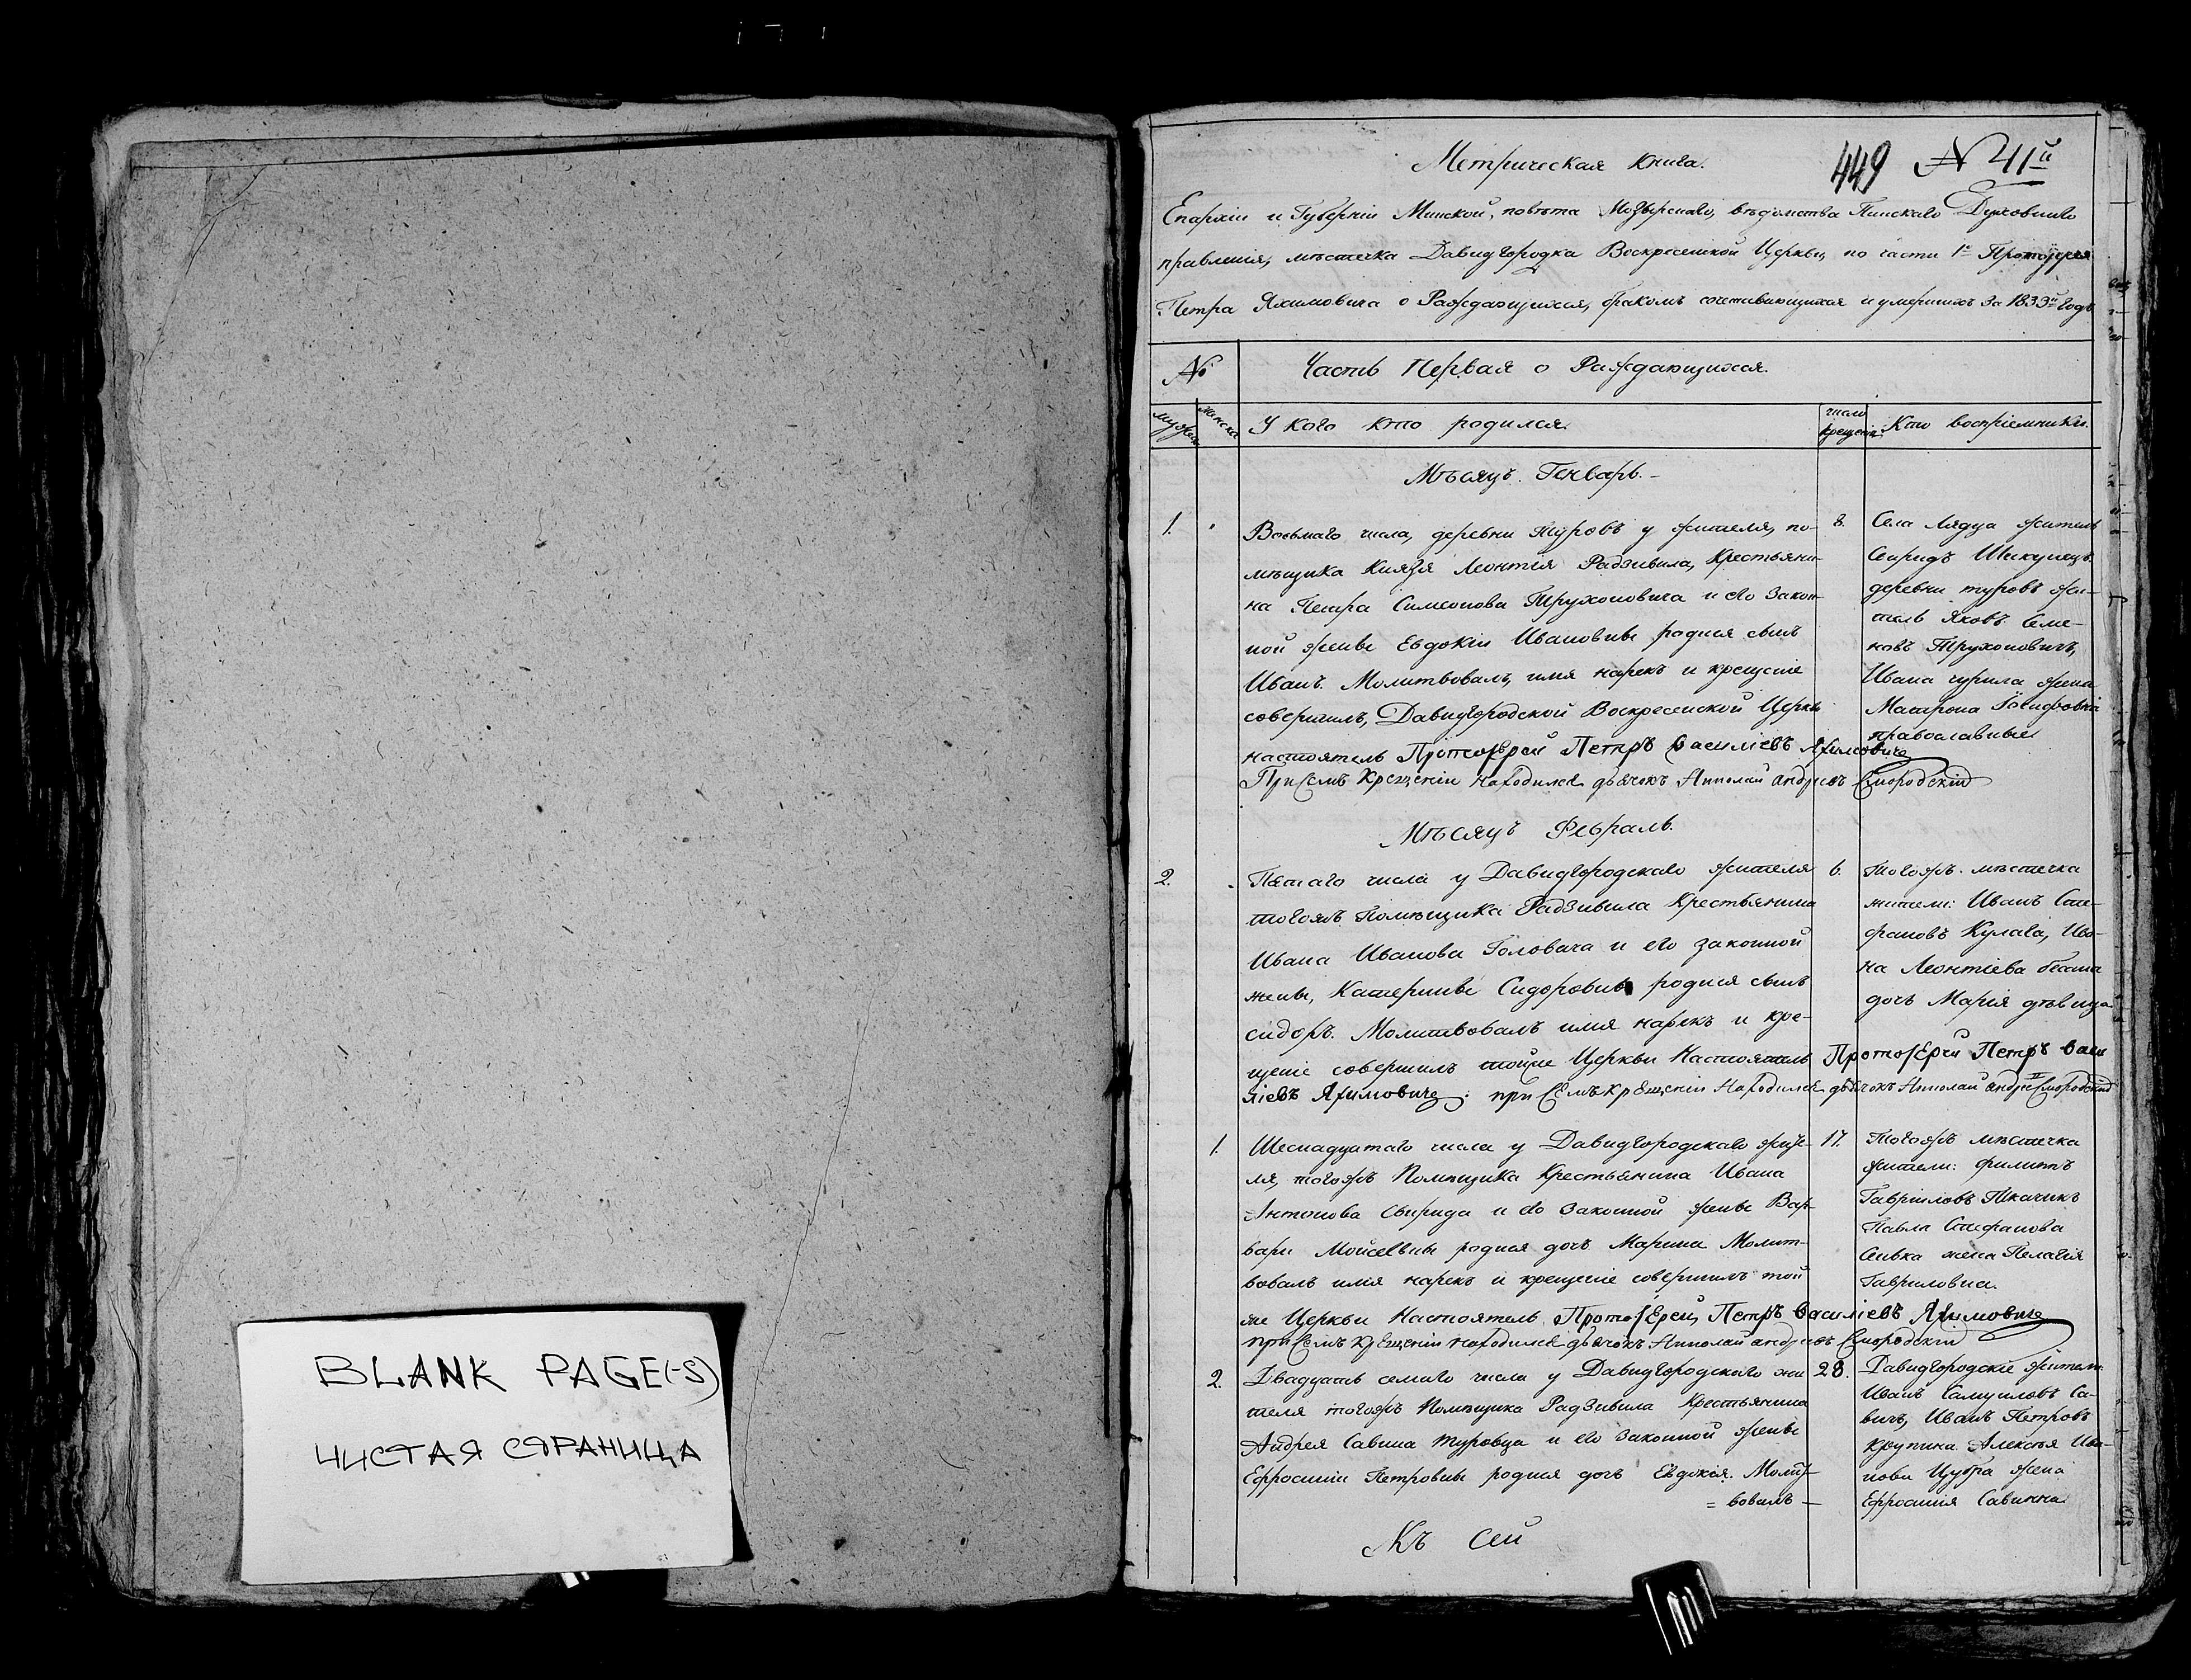 BLANK PAGE(-S)
ЧИСТАЯ СТРАНИЦА
Метрическая книга.
449 № 41й
Епархіи и Губерніи Минской, повѣта Мозырскаго, вѣдомства Пинскаго Духовнаго
правленія, мѣстечка Давидгородка Воскресенской Церкви, по части 1й Протоіерея
Петра Якимовича о Раждающихся, бракомъ сочетавающихся и умершихъ За 1833й Годъ
№ Часть Первая о Раждающихся.
мужеск женска У кого кто родился число крещенія Кто воспріемники.
Мѣсяцъ Генварь.
1. Восьмаго числа, деревни Туровъ у жителя, по- 8. Села Лядца житель
мѣщика Князя Леонтія Радзивила, Крестьяни-
на Петра Симеонова Трухоновича и его закон-
ной жены Евдокіи Ивановны родися сынъ
Иванъ. Молитвовалъ, имя нарекъ и крещеніе
совершилъ, Давидгородской Воскресенской Церкви
настоятель Протоіерей Петръ Василіевъ Якимовичъ
При семъ Крещеніи находился дьячокъ Николай Андреевъ Смородскій
деревни туровъ жи-
тель Яковъ Семе-
новъ Трухоновичъ,
Ивана жена
Матрона
православные
Мѣсяцъ Февраль.
2. Пятаго числа у Давидгородскаго жителя 6. Тогожъ мѣстечка
тогожъ Помѣщика Радзивила Крестьянина
Ивана Иванова Головача и его законной
жены, Катерины Сидоровны родися сынъ
сидоръ. Молитвовалъ имя нарекъ и кре-
щеніе совершилъ тойже Церкви Настоятель Протоіерей Петръ Васи
ліевъ Якимовичъ: при семъ крещеніи Находился дьячокъ Николай Андреевъ Смородскій
жители: Иванъ Сте-
фановъ Кулага, Ива-
на Леонтіева
дочь Марія дѣвица
1. Шеснадцатаго числа у Давидгородскаго жите- 17. Тогожъ мѣстечка
ля, тогожъ Помѣщика Крестьянина Ивана
Антонова Свирида и его законной жены Вар-
вары Мойсеевны родися дочь Марина Молит-
вовалъ имя нарекъ и крещеніе совершилъ той
же Церкви Настоятель Протоіерей Петръ Василіевъ Якимовичъ
при семъ крещеніи находился дьячокъ Николай Андреевъ Смородскій
жители: филипъ
Гавріиловъ Ткачикъ
Павла Стефанова
жена Пелагія
Гавриловна.
2. Двадцать семаго числа у Давидгородскаго жи 28. Давидгородскіе жители
теля тогожъ Помѣщика Радзивила Крестьянина
Андрея Савина Туровца и его законной жены
Ефросиніи Петровны родися дочь Евдокія. Молит-
= вовалъ
Иванъ Самуиловъ Са-
вичъ, Иванъ Петровъ
Крупика Алексѣя Ива-
нова Цубра жена
Ефросинія Савинна
Къ Сей